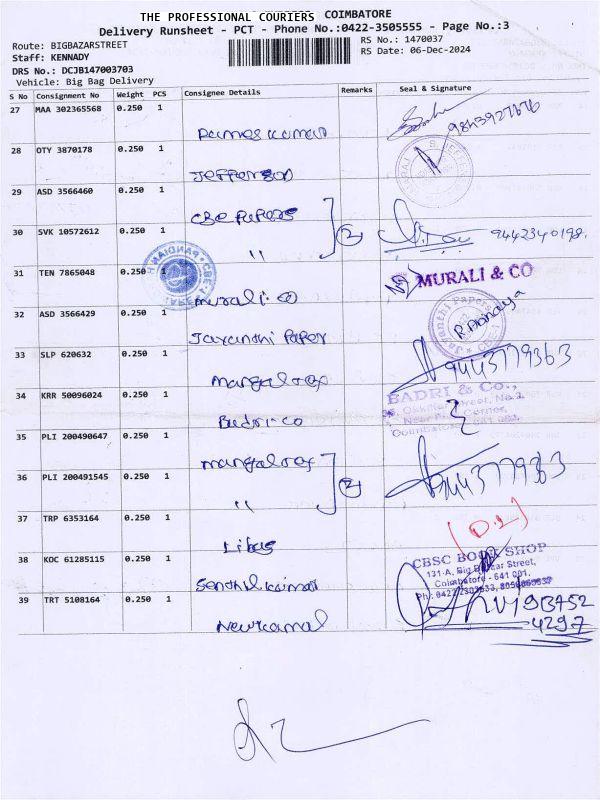 THE PROFESSIONAL COURIERS COIMBATORE
Delivery Runsheet - PCT - Phone No.:0422-3505555 - Page No.:3
Route: BIGBAZARSTREET
RS No.: 1470037
Staff: KENNADY
RS Date: 06-Dec-2024
DRS No.: DCJB147003703
Vehicle: Big Bag Delivery
S No Consignment No Weight PCS Consignee Details Remarks Seal & Signature
27 MAA 302365568 0.250 1
9843927676
28 OTY 3870178 0.250 1
Jefferson
29 ASD 3566460 0.250 1
CBE Papers
30 SVK 10572612 0.250 1
" 2 9442340198.
31 TEN 7865048 0.250 1
Murali.co MURALI & CO
32 ASD 3566429 0.250 1
Jayanthi Paper
33 SLP 620632 0.250 1
9443779363
34 KRR 50096024 0.250 1
Badri.co BADRI & Co.,
35 PLI 200490647 0.250 1
36 PLI 200491545 0.250 1
" 2
37 TRP 6353164 0.250 1
38 KOC 61285115 0.250 1
Senthil kumar
CBSC BOOK SHOP
131-A, Big Bazaar Street,
Coimbatore - 641 001.
39 TRT 5108164 0.250 1
Newkamal
4297